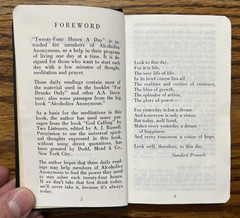 FOREWORD
"Twenty-Four Hours A Day" is in-
tended for members of Alcoholics
Anonymous, as a help in their program
of living one day at a time. It is de-
signed for those who want to start each
day with a few minutes of thought,
meditation and prayer.
These daily readings contain most of
the material used in the booklet "For
Drunks Only" and other A.A. litera-
ture; also some passages from the big
book "Alcoholics Anonymous."
As a basis for the meditations in this
book, the author has used many pas-
sages from the book "God Calling" by
Two Listeners, edited by A. J. Russell.
Permission to use the universal spirit-
ual thoughts expressed in this book,
without using direct quotations, has
been granted by Dodd, Mead & Co.,
New York City.
The author hopes that these daily read-
ings may help members of Alcoholics
Anonymous to find the power they need
to stay sober each twenty-four hours.
If we don't take that first drink today,
we'll never take it, because it's always
today.
Look to this day,
For it is life,
The very life of life.
In its brief course lies all
The realities and verities of existence,
The bliss of growth,
The splendor of action,
The glory of power—
For yesterday is but a dream
And tomorrow is only a vision,
But today, well lived,
Makes every yesterday a dream
of happiness
And every tomorrow a vision of hope.
Look well, therefore, to this day.
Sanskrit Proverb